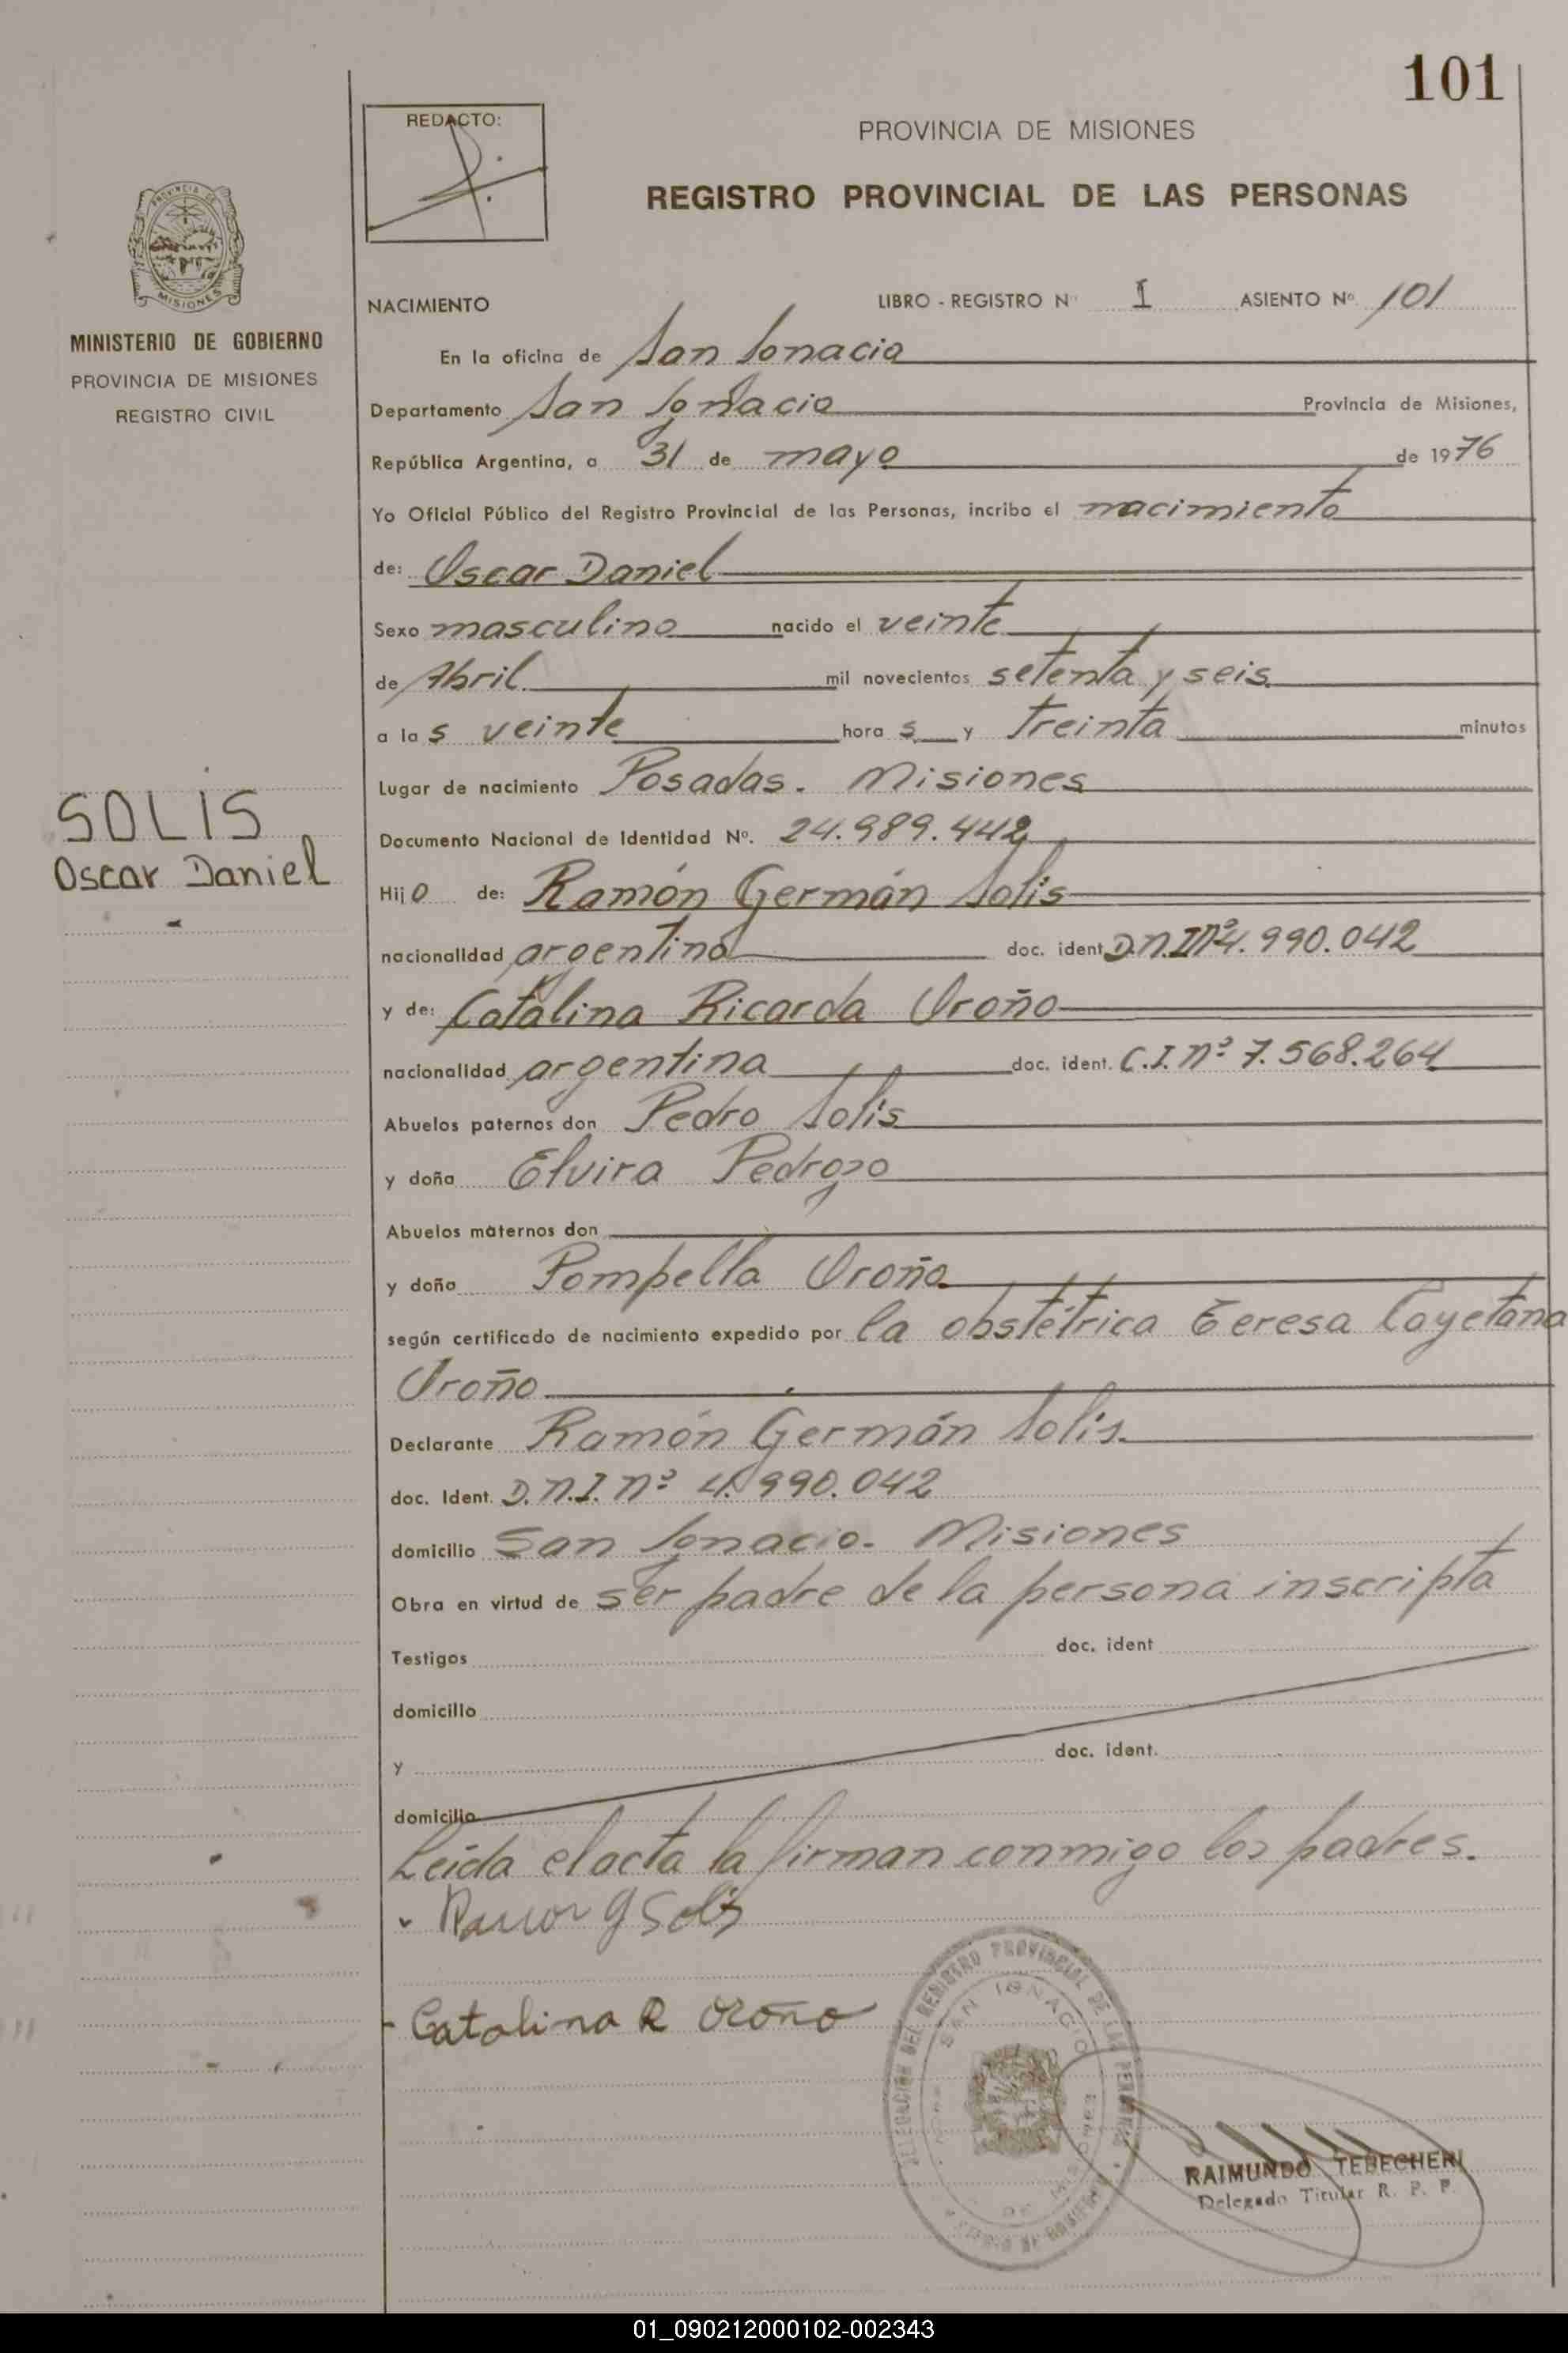 101
REDACTO:
PROVINCIA DE MISIONES
REGISTRO PROVINCIAL DE LAS PERSONAS
MISIONES
MINISTERIO DE GOBIERNO
PROVINCIA DE MISIONES
REGISTRO CIVIL
SOLIS
Oscar Daniel
NACIMIENTO LIBRO - REGISTRO Nº I ASIENTO Nº 101
En la oficina de San Ignacio
Departamento San Ignacio Provincia de Misiones,
República Argentina, a 31 de mayo de 1976
Yo Oficial Público del Registro Provincial de las Personas, incribo el nacimiento
de: Oscar Daniel
Sexo masculino nacido el veinte
de Abril mil novecientos setenta y seis
a las veinte horas y treinta minutos
Lugar de nacimiento Posadas. Misiones
Documento Nacional de Identidad Nº. 24.989.442
Hijo de: Ramón Germán Solis
nacionalidad argentina doc. ident. D.N.I Nº 4.990.042
y de: Catalina Ricarda Oroño
nacionalidad argentina doc. ident. C.I. Nº 7.568.264
Abuelos paternos don Pedro Solis
y doña Elvira Pedrozo
Abuelos maternos don
y doña Pompella Oroño
según certificado de nacimiento expedido por la obstétrica Teresa Cayetana
Oroño
Declarante Ramón Germán Solis.
doc. Ident. D.N.I. Nº 4.990.042
domicilio San Ignacio. Misiones
Obra en virtud de ser padre de la persona inscripta
Testigos doc. ident
domicilio
y doc. ident.
domicilio
Leída el acta la firman conmigo los padres.
Ramon G Solis
Catalina R Oroño
DELEGACION DEL REGISTRO PROVINCIAL DE LAS PERSONAS
SAN IGNACIO
RAIMUNDO TEBECHERI
Delegado Titular R. P. P.
01_090212000102-002343